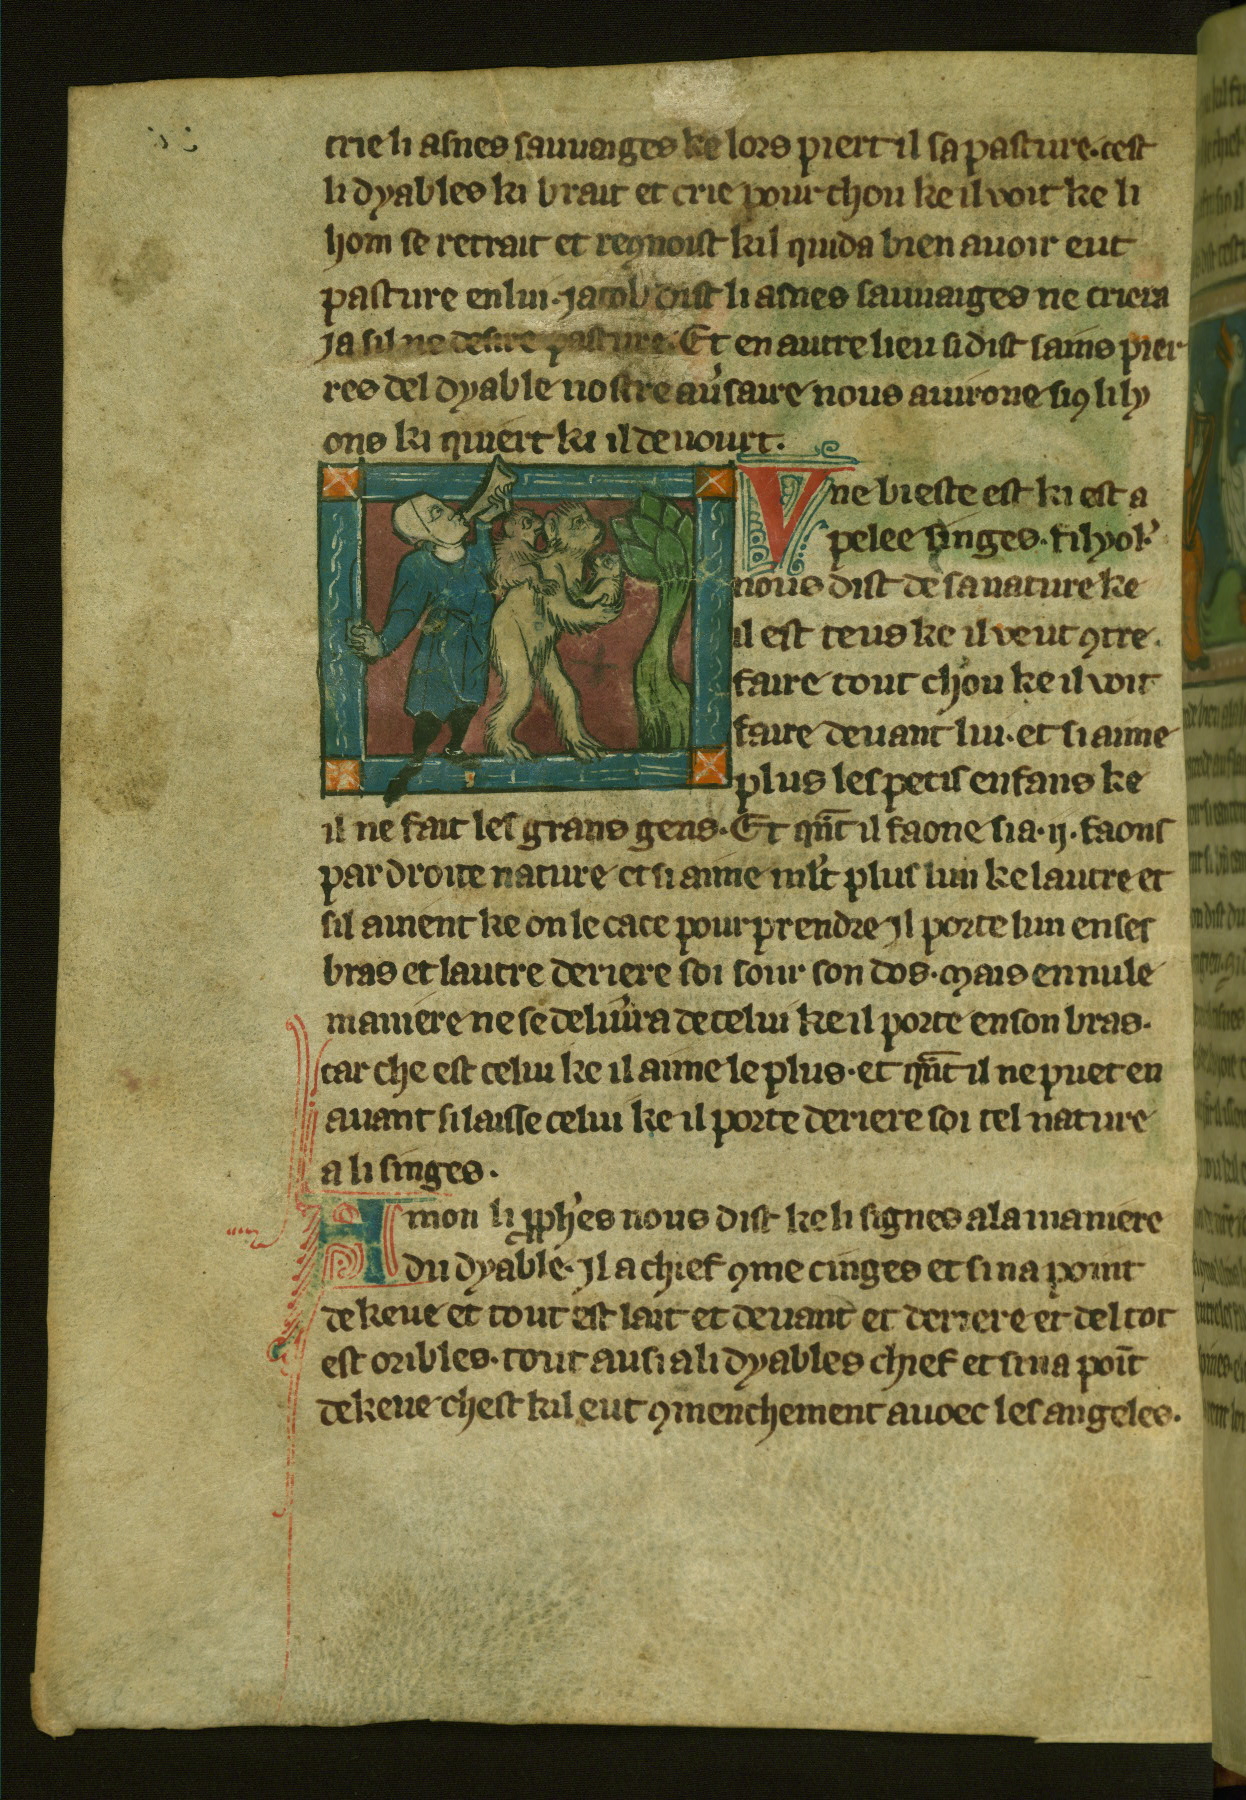 crie li asnes sauuaiges ke lors piert il sa pasture. cest
li dyables ki brait et crie pour chou ke il voit ke li
hom se retrait et reqnoist kil quida bien auoir eut
pasture en lui. jacob dist li asnes sauuaiges ne criera
ja sil ne desire pasture. Et en autre lieu si dist sains pier
res del dyable nostre au'saire nous auirone si9 li ly
ons ki quiert ki il deuourt.
Vne bieste est ki est a
pelee singes. fihyol'
nous dist de sa nature ke
il est teus ke il veut 9tre
faire tout chou ke il voit
faire deuant lui. et si aime
plus les petis enfans ke
il ne fait les grans gens. Et qn̄t il faone si a .ij. faons
par droite nature et si aime ml't plus lun ke lautre et
sil auient ke on le cace pour prendre Jl porte lun en ses
bras et lautre deriere soi sour son dos. Mais en nule
maniere ne se deliu'ra de celui ke il porte en son bras.
car che est celui ke il aime le plus. et qn̄t il ne puet en
auant si laisse celui ke il porte deriere soi tel nature
a li singes.
Amon li pph'es nous dist ke li signes a la maniere
du dyable. Jl a chief 9me cinges et si na point
de keue et tout est lait et deuant et derriere et del tot
est oribles. tout ausi a li dyables chief et si na poīt
de keue chest kil eut 9menchement auoec les angeles.